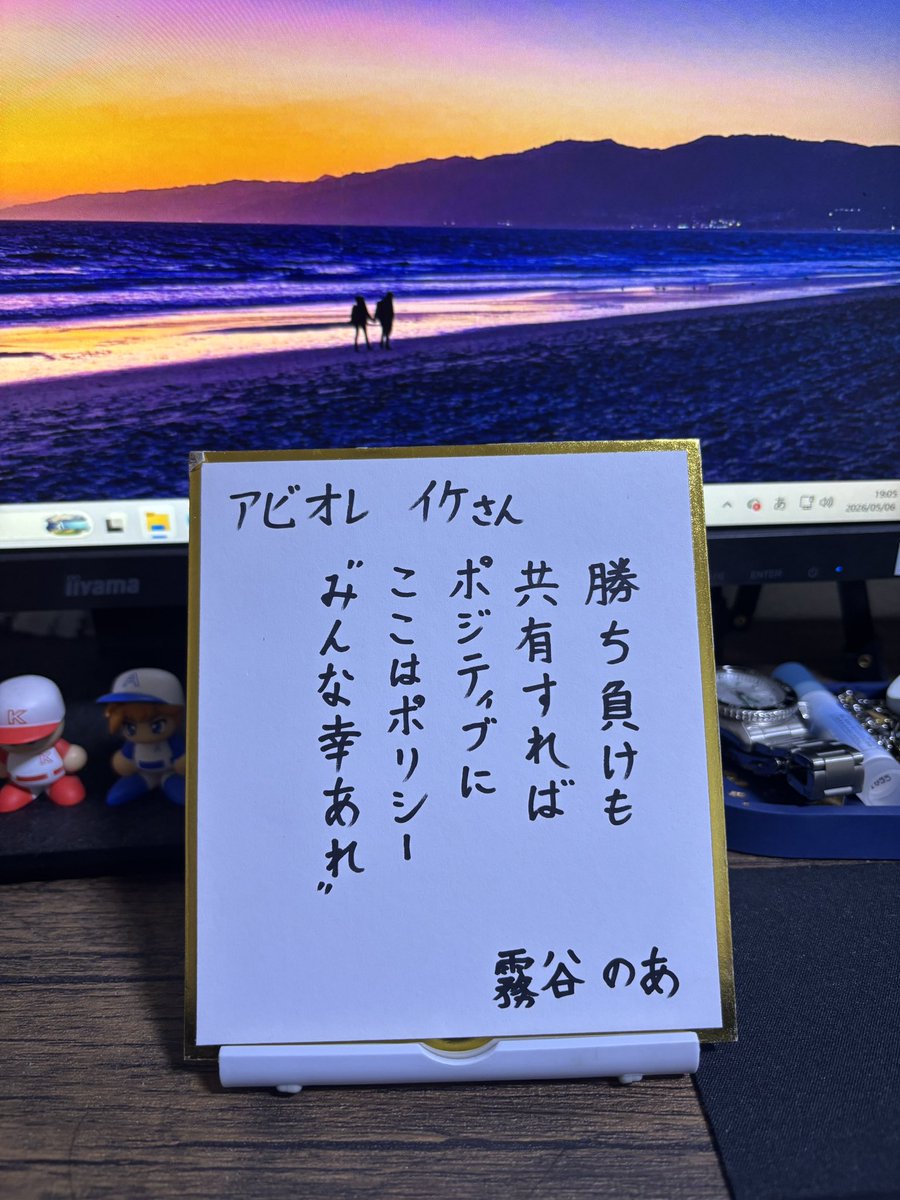 アビオレ イケさん
勝ち負けも
共有すれば
ポジティブに
ここはポリシー
"みんな幸あれ"
霧谷 のあ
iiyama
あ
19:05
2026/05/06
ENTER
K
K
A